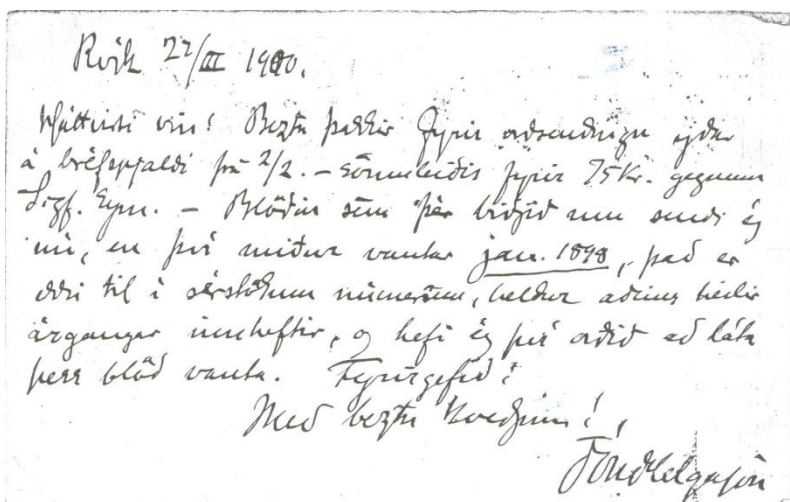 Rvík 22/III 1900.
Háttvirti vin! Beztu þakkir fyrir orðsendingu yðar
á bréfspjaldi frá 2/2. – Sömuleiðis fyrir 75 Kr. gegnum
Sigf. Eym. – Blöðin sem þér biðjið um sendi ég
nú, en því miður vantar jan. 1898, það er
ekki til í sérstökum númerum, heldur aðeins heilir
árgangar innheftir, og hefi ég því orðið að láta
þess blöð vanta. Fyrirgefið!
Með beztu kveðjum!,
Jón Helgason